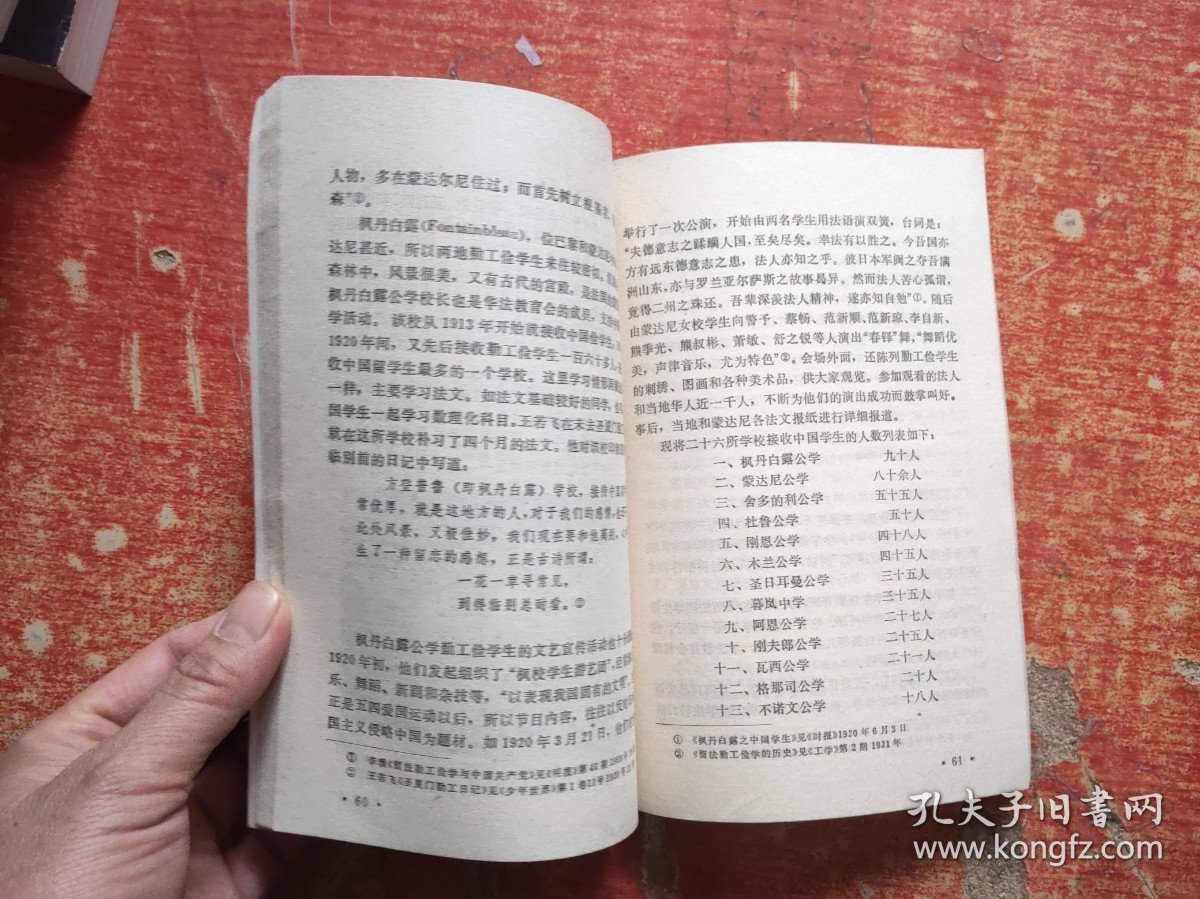 人物，多在蒙达尔尼住过；而首先树立
森”①。
枫丹白露(Fontainbleau)，位巴黎和蒙达尼
达尼甚近，所以两地勤工俭学生来往较密切，
森林中，风景很美，又有古代的宫殿，是法国
枫丹白露公学校长也是华法教育会的成员，
学活动。该校从1913年开始就接收中国俭学生，
1920年间，又先后接收勤工俭学生一百六十多人，
收中国留学生最多的一个学校。这里学习情形
一样，主要学习法文。如法文基础较好的同学，
国学生一起学习数理化科目。王若飞在未去圣夏门
就在这所学校补习了四个月的法文。他对该校
临别前的日记中写道：
方登普鲁（即枫丹白露）学校，接待
常优厚，就是这地方的人，对于我们的感情，
此处风景，又极佳妙，我们现在要和他离别，
生了一种留恋的感想，正是古诗所谓：
一花一草寻常见，
到得临别总耐看。②
枫丹白露公学勤工俭学生的文艺宣传活动也十分
1920年初，他们发起组织了“枫校学生游艺团”，
乐、舞蹈、新剧和杂技等，“以表现我国固有的文明”，
正是五四爱国运动以后，所以节目内容，往往以反对
国主义侵略中国为题材。如1920年3月21日，他们
① 李璜《留法勤工俭学与中国共产党》见《明报》第
② 王若飞《圣夏门勤工日记》见《少年世界》第1卷11号
·60·
举行了一次公演，开始由两名学生用法语演双簧，台词是：
“夫德意志之蹂躏人国，至矣尽矣。幸法有以胜之。今吾国亦
方有远东德意志之患，法人亦知之乎。彼日本军阀之夺吾满
洲山东，亦与罗兰亚尔萨斯之故事曷异。然而法人苦心孤诣，
竟得二州之珠还。吾辈深羡法人精神，遂亦知自勉”①。随后
由蒙达尼女校学生向警予、蔡畅、范新顺、范新琼、李自新、
熊季光、熊叔彬、萧敏、舒之锐等人演出“春铎”舞，“舞蹈优
美，声津音乐，尤为特色”②。会场外面，还陈列勤工俭学生
的刺绣、图画和各种美术品，供大家观览。参加观看的法人
和当地华人近一千人，不断为他们的演出成功而鼓掌叫好。
事后，当地和蒙达尼各法文报纸进行详细报道。
现将二十六所学校接收中国学生的人数列表如下：
一、枫丹白露公学 九十人
二、蒙达尼公学 八十余人
三、舍多的利公学 五十五人
四、杜鲁公学 五十人
五、刚恩公学 四十八人
六、木兰公学 四十五人
七、圣日耳曼公学 三十五人
八、暮岚中学 三十五人
九、阿恩公学 二十七人
十、刚夫郎公学 二十五人
十一、瓦西公学 二十一人
十二、格那司公学 二十人
十三、不诺文公学 十八人
① 《枫丹白露之中国学生》见《时报》1920年6月3日
② 《留法勤工俭学的历史》见《工学》第2期1921年
·61·
孔夫子旧书网
www.kongfz.com